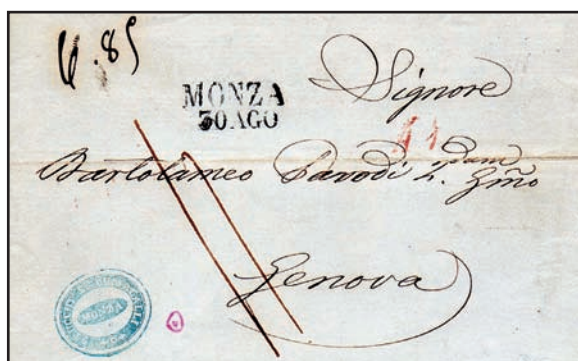 6.85
MONZA
30 AGO
Signore
Bartolameo Parodi q. Gmo
Genova
MONZA